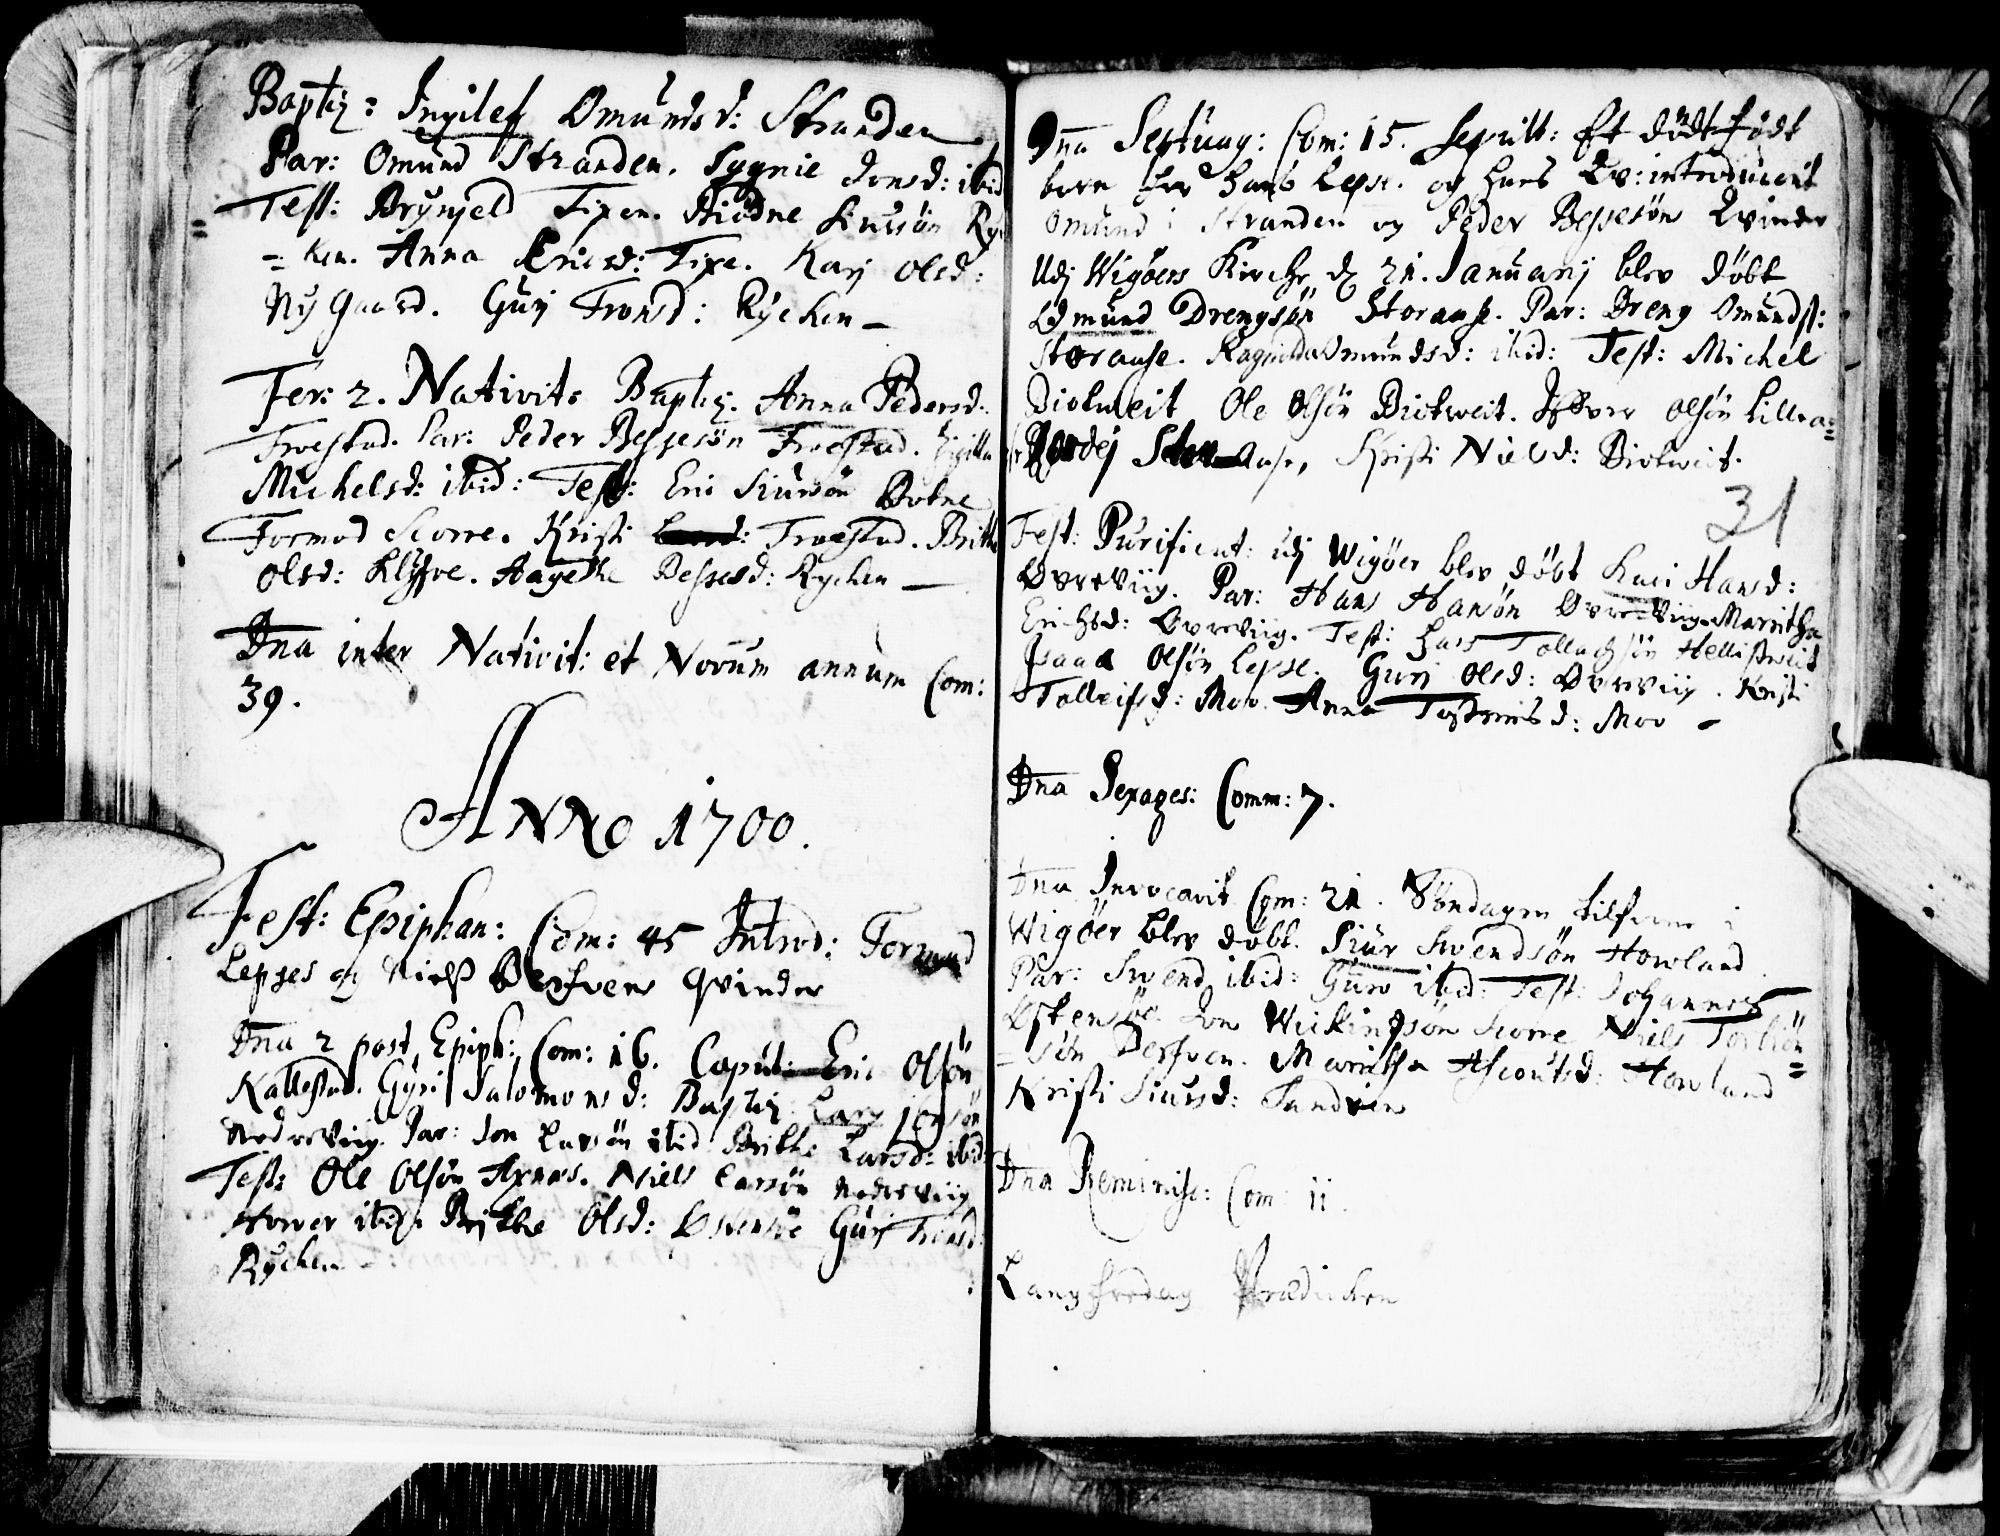 Baptiz: Ingilef Omundsd: Stranden
Par: Omund Stranden. Sygnie Jonsd: ibid
Test: Brynjeld Fixen. Siursön Ryc
= ken. Anna Ericsd: Fixe. Karj Olsd:
Nygaard. Gurj Tronsd: Rycken –
Fer: 2. Nativit: Baptiz. Anna Pedersd:
Troestad. Par: Peder Bessesön Troestad.
Michelsd: ibid: Test: Eric Siursön Botne
Tormod Scorre. Kristi Troestad. Britte
Olsd: Klyfve. Aagethe Bessesd: Rycken –
Dna inter Nativit: et Novum annum Com:
39.
ANNO 1700.
Fest: Epiphan: Com: 45 Introd: Tormund
Lepses og Nielß Berfvens Qvinder
Dna 2 post Epiph: Com: 16. Copul: Eric Olsön
Nattestad. Gyri Salomonsd: Baptiz: Lars Jonsön
Nedreviig. Par: Jon Larsön ibid Britte Larsd: ibid:
Test: Ole Olsön Axnæs. Niels Larsön Nedreviig
ibid. Britthe Olsd: Östensöe Gurj Tronsd:
Rycken
Dna Septuag: Com: 15. Sepult: Et dödt födt
born for Lepse. og hans Qv: introducerit
Omund i Stranden og Peder Bessesöns Qvinder
Udj Wigöers Kirche d 21. Januarij blev döbt
Omund Drengsön Storause. Par: Dreng Omundsß:
Storause. Ragnilda Omundsd: ibid: Test: Michel
Diotweit Ole Olsön Diotweit. Olsön Lillea=
Ause, Kristi Nielsd: Diotweit.
31
Fest: Purificat: udj Wigöer blev döbt Kari Hansd:
Övreviig. Par: Hans Hansön Övreviig. Maritha
Erichsd: Övreviig. Test: Lars Tollachsön Hellistveit
Isaac Olsön Lepse. Gurj Olsd: Övreviig. Kristi
Tolleifsd: Moo. Anna Tostensd: Moo –
Dna Sexages: Comm: 7.
Dna Invocavit Com: 21. Söndagen tilforne i
Wigöer blev döbt. Siur Svendsön Howland.
Par: Svend ibid: Guro ibid: Test: Johannes
Östensöe. Jon Wiikingsön Scorre Niels Torbiön
= sön Berfven. Maritha Howland
Kristi Siursd: Sandven
Dna Reminisc: Com: 11.
Langfredag Prædicken